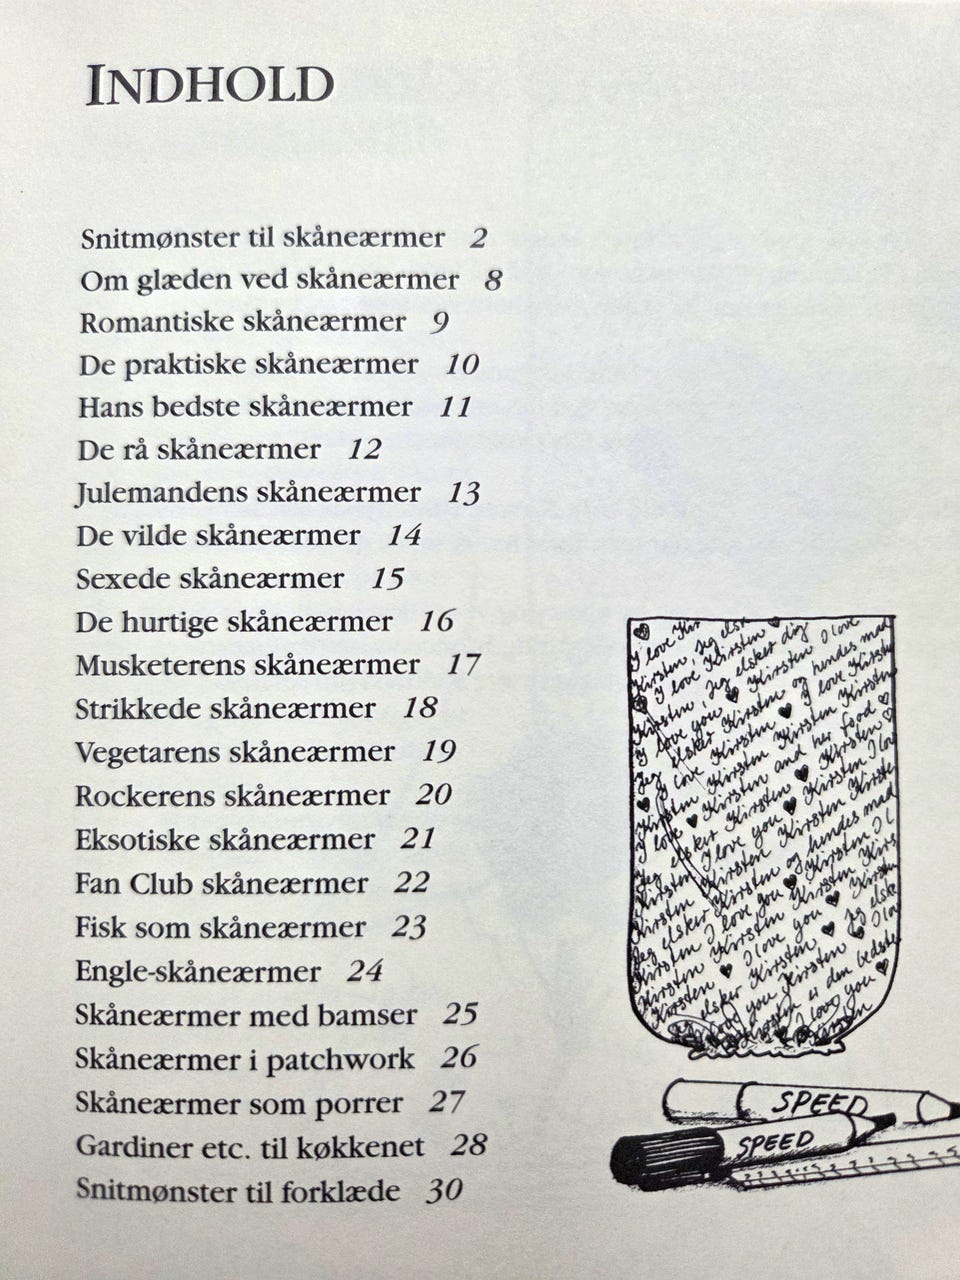 INDHOLD
Snitmønster til skåneærmer 2
Om glæden ved skåneærmer 8
Romantiske skåneærmer 9
De praktiske skåneærmer 10
Hans bedste skåneærmer 11
De rå skåneærmer 12
Julemandens skåneærmer 13
De vilde skåneærmer 14
Sexede skåneærmer 15
De hurtige skåneærmer 16
Musketerens skåneærmer 17
Strikkede skåneærmer 18
Vegetarens skåneærmer 19
Rockerens skåneærmer 20
Eksotiske skåneærmer 21
Fan Club skåneærmer 22
Fisk som skåneærmer 23
Engle-skåneærmer 24
Skåneærmer med bamser 25
Skåneærmer i patchwork 26
Skåneærmer som porrer 27
Gardiner etc. til køkkenet 28
Snitmønster til forklæde 30
I love Kir
Kirsten, Jeg elsk
I love Kirsten
Kirsten, Jeg elsker dig
I love you Kirsten I love
Jeg elsker Kirsten og hendes mad
I love Kirsten I love Kirst
Kirsten Kirsten Kirsten Kirsten
I love Kirsten and her food
Jeg elsker Kirsten Kirsten
Kirsten I love you Kirsten I lo
Kirsten Kirsten Kirsten Kirste
Jeg elsker Kirsten og hendes mad
Kirsten I love you Kirsten I l
Kirsten Kirsten Kirsten Kirs
Kirsten I love you Jeg elske
Jeg elsker Kirsten I lo
love you Kirsten
er den bedste
I love you
Kirsten
SPEED
SPEED